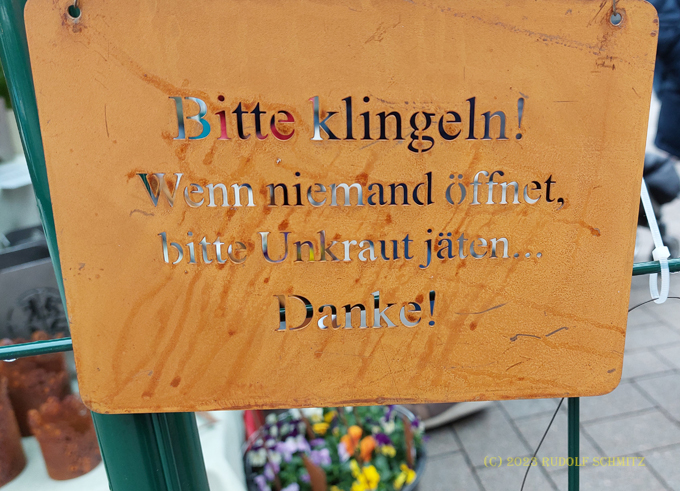 Bitte klingeln!
Wenn niemand öffnet,
bitte Unkraut jäten...
Danke!
(C) 2023 RUDOLF SCHMITZ